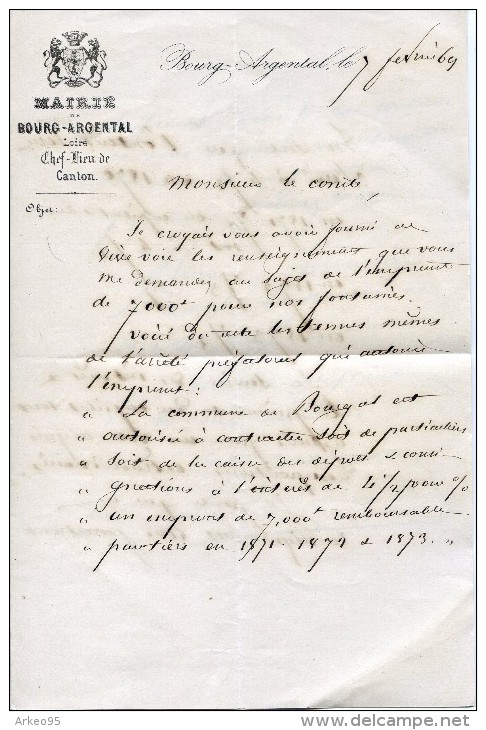 Bourg-Argental, le 7 février 69
MAIRIE
DE
BOURG-ARGENTAL
Loire
Chef-Lieu de
Canton.
Objet:
Monsieur le comte,
Je croyais vous avoir fourni de
vive voix les renseignements que vous
me demandez au sujet de l'emprunt
de 7000f pour nos fontaines.
Voici du reste les termes mêmes
de l'arrêté préfectoral qui autorise
l'emprunt:
" La commune de Bourgal est
" autorisée à contracter soit de particuliers
" soit de la caisse des dépots & consi
" gnations à l'intérêt de 4 1/2 pour %
" un emprunt de 7,000f remboursable
" par tiers en 1871 1872 & 1873. "
Arkeo95
www.delcampe.net